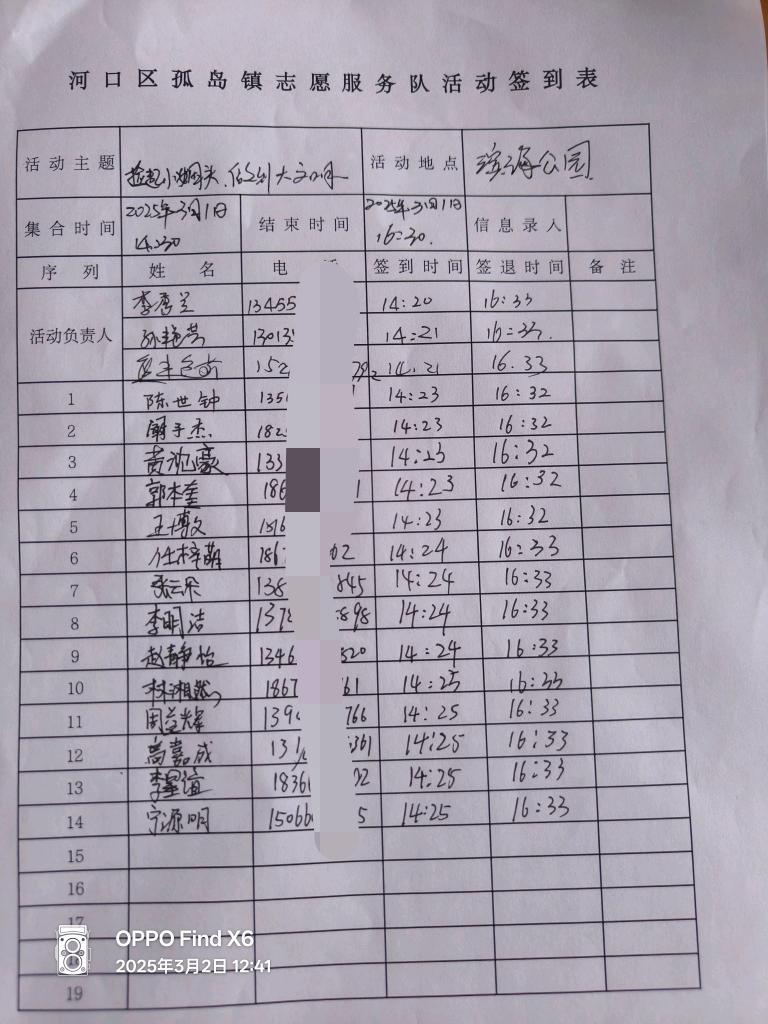 河口区孤岛镇志愿服务队活动签到表
活动主题 捡起小烟头 大文明 活动地点 滨海公园
集合时间 2025年3月1日 14:30 结束时间 2025年3月1日 16:30. 信息录入
序列 姓名 电 签到时间 签退时间 备注
活动负责人
李秀兰 13455 14:20 16:33
孙艳芳 1301 14:21 16:33.
152 14.21 16.33
1 陈世钟 135 14:23 16:32
2 子杰 182 14:23 16:32
3 黄 豪 133 14:23 16:32
4 郭本奎 186 1 14:23 16:32
5 王博文 14:23 16:32
6 任梓萌 186 02 14:24 16:33
7 张云 138 845 14:24 16:33
8 李明洁 137 898 14:24 16:33
9 赵静怡 1346 520 14:24 16:33
10 林湘 1867 61 14:25 16:33
11 周益辉 139 766 14:25 16:33
12 高嘉成 131 361 14:25 16:33
13 李星谊 1836 02 14:25 16:33
14 宁源明 15066 5 14:25 16:33
15
16
17
18
19
OPPO Find X6
2025年3月2日 12:41